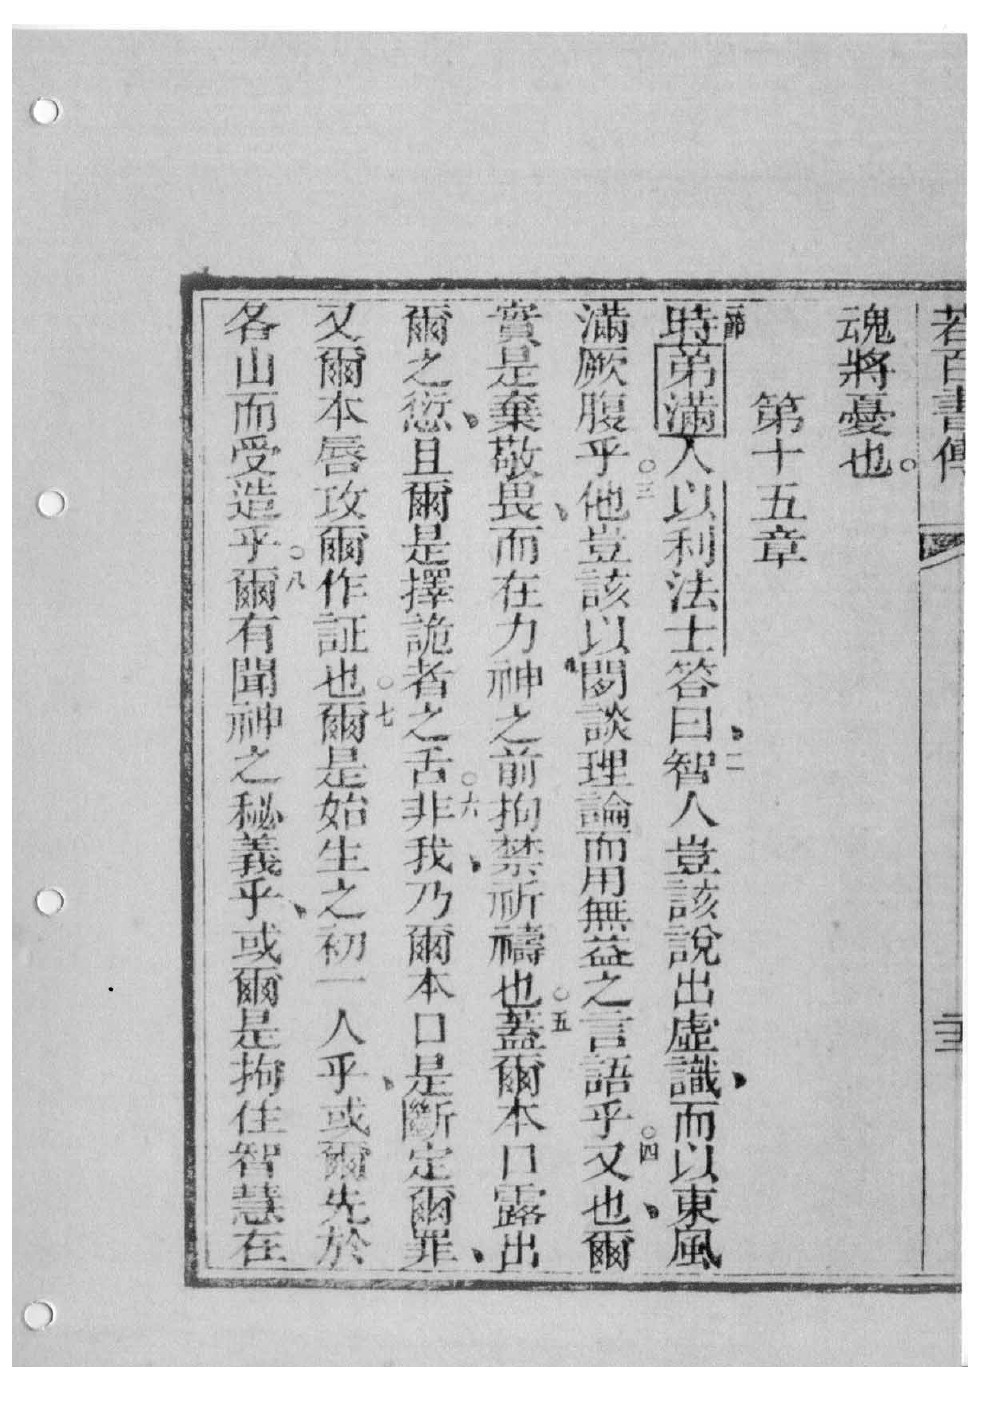 若百書傳
二十三
魂將憂也。
第十五章
一節時弟滿人以利法士答曰、二智人豈該說出虛識、而以東風
滿厥腹乎。三他豈該以閑談理論而用無益之言語乎。四又也、爾
實是棄敬畏、而在力神之前拘禁祈禱也。五蓋爾本口露出
爾之愆、且爾是擇詭者之舌。六非我、乃爾本口是斷定爾罪、
又爾本唇攻爾作証也。七爾是始生之初一人乎、或爾先於
各山而受造乎。八爾有聞神之秘義乎、或爾是拘住智慧在